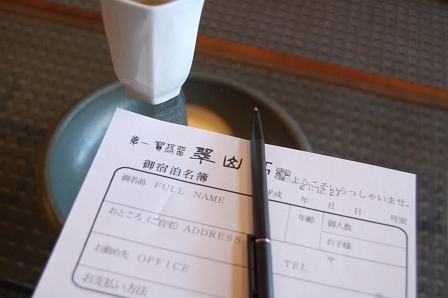 第一 翠山 ようこそいらっしゃいませ。
御宿泊名簿
21.12.27
平成 年 月 日 号室
御名前 FULL NAME 年齢 御人数
お子様
おところ(ご自宅) ADDRESS 〒
お勤め先 OFFICE TEL
お支払い方法